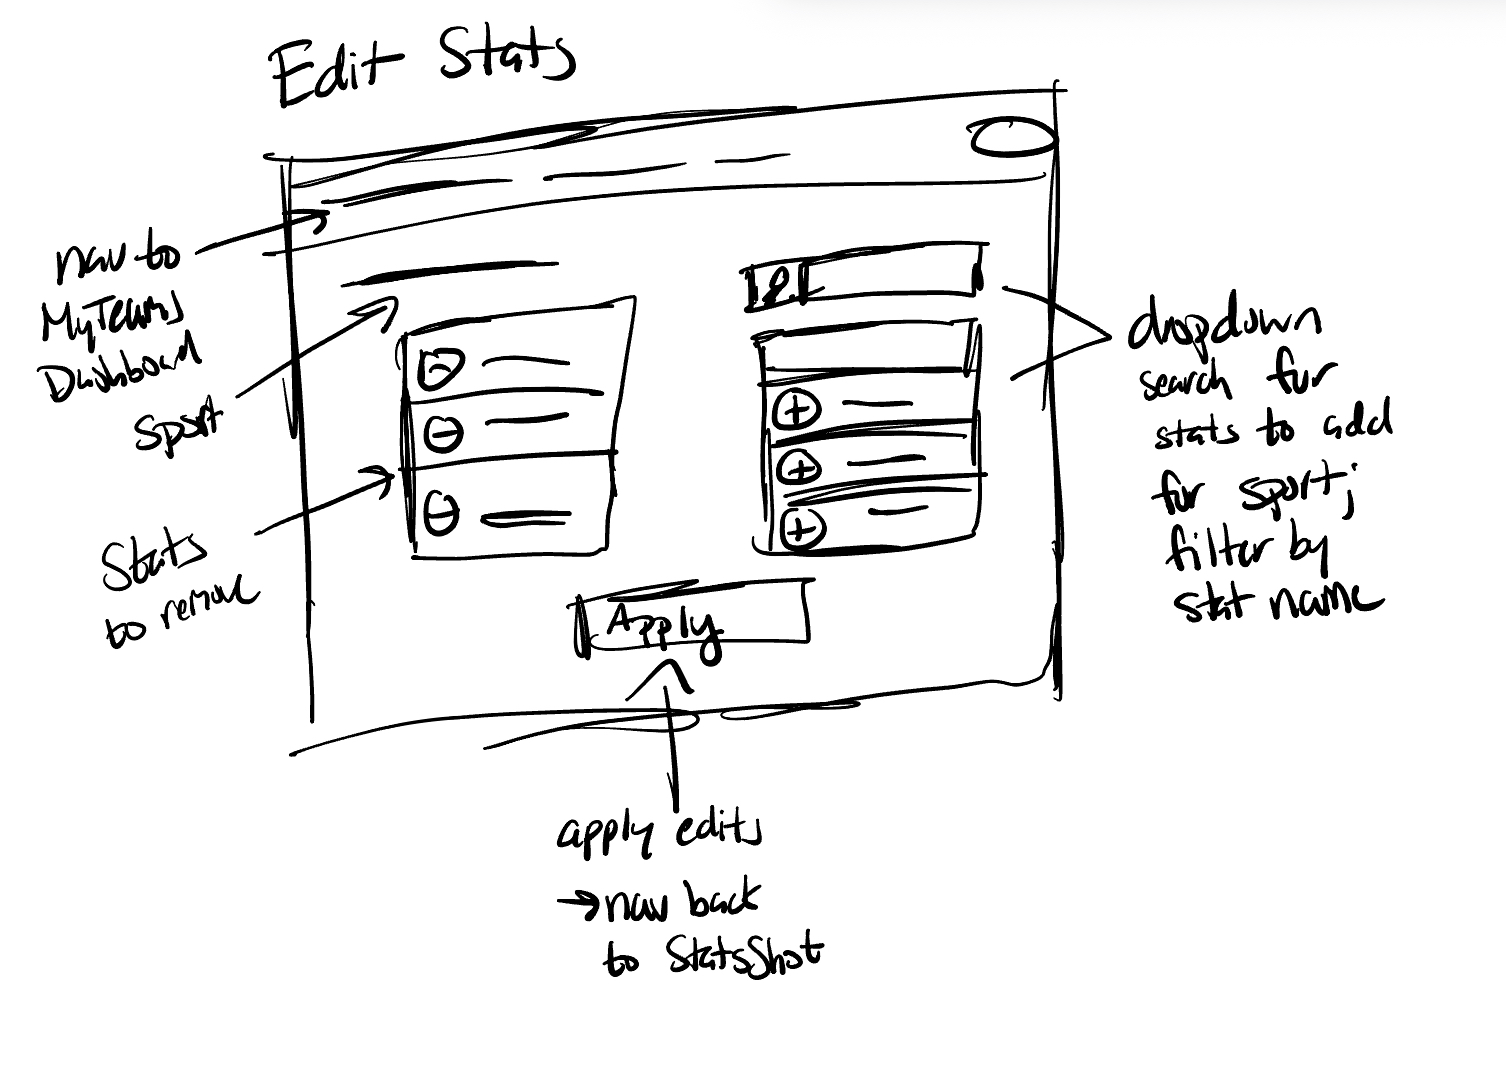 Edit Stats
nav to
MyTeams
Dashboard
sport
Stats
to remove
dropdown
search for
stats to add
for sport;
filter by
stat name
Apply
apply edits
→ nav back
to StatsShot